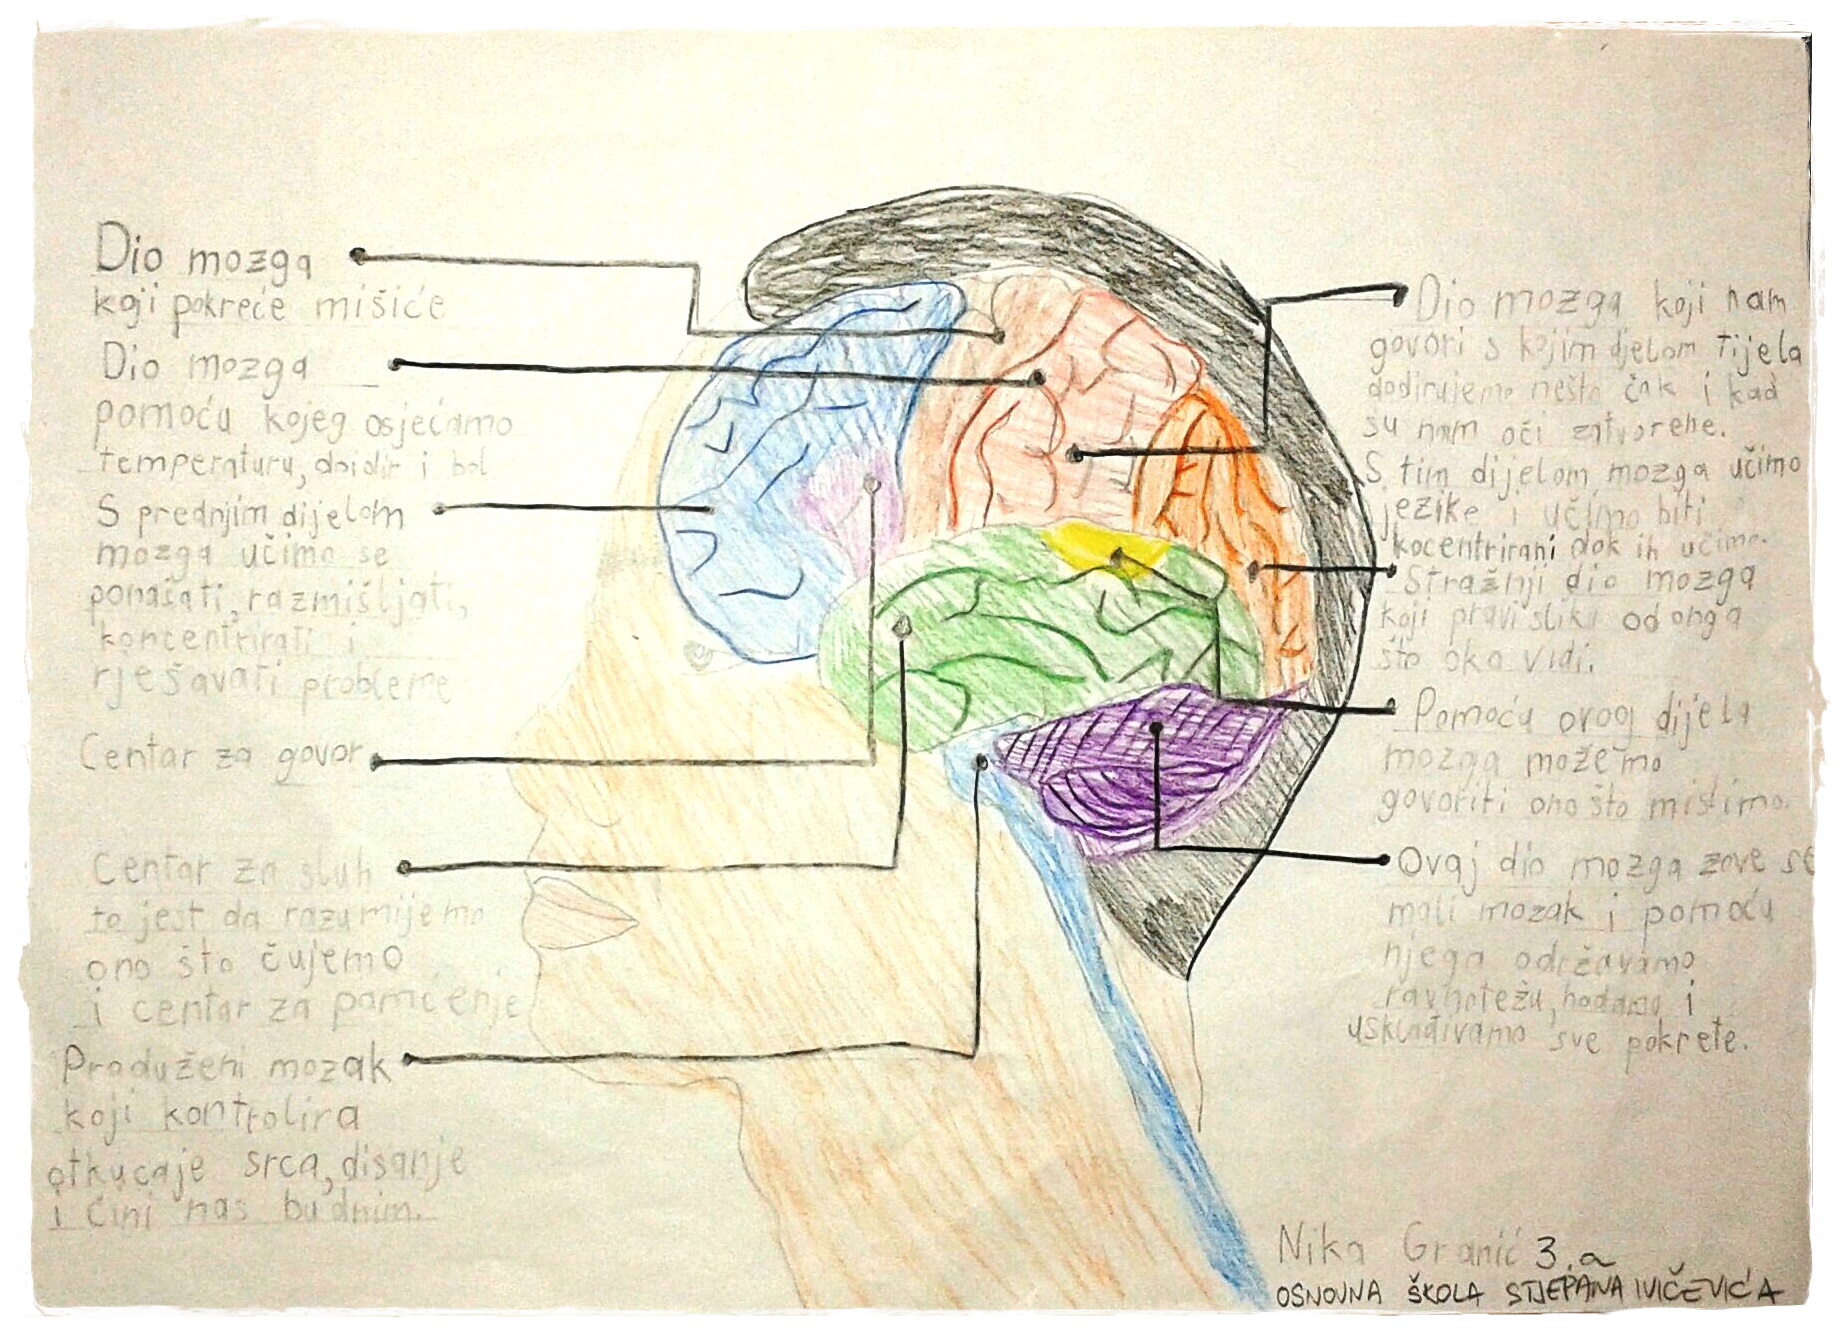 Dio mozga
koji pokreće mišiće
Dio mozga
pomoću kojeg osjećamo
temperaturu, doidir i bol
S prednjim dijelom
mozga učimo se
ponašati, razmišljati,
koncentrirati i
rješavati probleme
Centar za govor
Centar za sluh
to jest da razumijemo
ono što čujemo
i centar za pamćenje
Produženi mozak
koji kontrolira
otkucaje srca, disanje
i čini nas budnim.
Dio mozga koji nam
govori s kojim djelom tijela
dodirujemo nešto čak i kad
su nam oči zatvorene.
S tim dijelom mozga učimo
jezike i učimo biti
kocentrirani dok ih učimo.
Stražnji dio mozga
koji pravi sliku od onga
što oko vidi.
Pomoću ovog dijela
mozga možemo
govoriti ono što mislimo.
Ovaj dio mozga zove se
mali mozak i pomoću
njega održavamo
ravnotežu, hodamo i
usklađivamo sve pokrete.
Nika Granić 3.a
OSNOVNA ŠKOLA STJEPANA IVIČEVIĆA